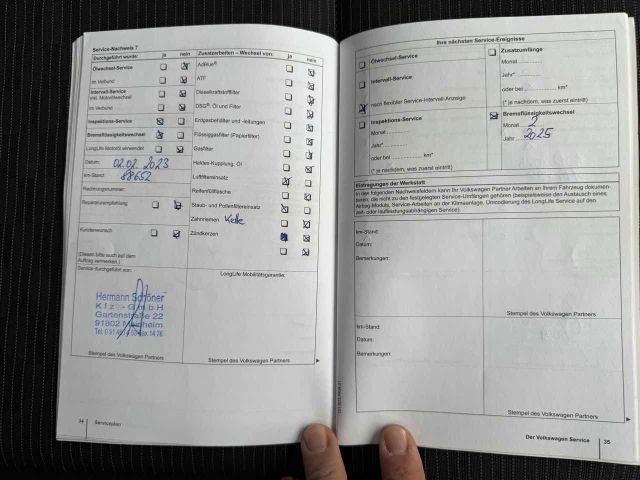 Service-Nachweis 7
Durchgeführt wurde: ja nein
Ölwechsel-Service
im Verbund
Intervall-Service
inkl. Motorölwechsel
im Verbund
Inspektions-Service
Bremsflüssigkeitswechsel
LongLife Motoröl verwendet
Datum: 02.02.2023
km-Stand: 88652
Rechnungsnummer:
Reparaturempfehlung
Kundenwunsch
(Diesen bitte auch auf dem
Auftrag vermerken.)
Service durchgeführt von:
Hermann Schöner
Kfz - GmbH
Gartenstraße 22
91802 Meinheim
Stempel des Volkswagen Partners
Zusatzarbeiten – Wechsel von: ja nein
AdBlue®
ATF
Dieselkraftstofffilter
DSG®: Öl und Filter
Erdgasbehälter und -leitungen
Flüssiggasfilter (Papierfilter)
Gasfilter
Haldex-Kupplung, Öl
Luftfiltereinsatz
Reifenfüllflasche
Staub- und Pollenfiltereinsatz
Zahnriemen
Zündkerzen
LongLife Mobilitätsgarantie:
Stempel des Volkswagen Partners
34 Serviceplan
Ihre nächsten Service-Ereignisse
Ölwechsel-Service
Intervall-Service
nach flexibler Service-Intervall-Anzeige
Inspektions-Service
Monat
Jahr*
oder bei km*
(* je nachdem, was zuerst eintritt)
Zusatzumfänge
Monat
Jahr*
oder bei km*
(* je nachdem, was zuerst eintritt)
Bremsflüssigkeitswechsel
Monat 2
Jahr 2025
Eintragungen der Werkstatt:
In den folgenden Nachweisfeldern kann Ihr Volkswagen Partner Arbeiten an Ihrem Fahrzeug dokumentieren, die nicht zu den festgelegten Service-Umfängen gehören (beispielsweise den Austausch eines
Airbag-Moduls, Service-Arbeiten an der Klimaanlage, Umcodierung des LongLife Service auf den
zeit- oder laufleistungsabhängigen Service).
km-Stand:
Datum:
Bemerkungen:
Stempel des Volkswagen Partners
km-Stand:
Datum:
Bemerkungen:
Stempel des Volkswagen Partners
Der Volkswagen Service 35